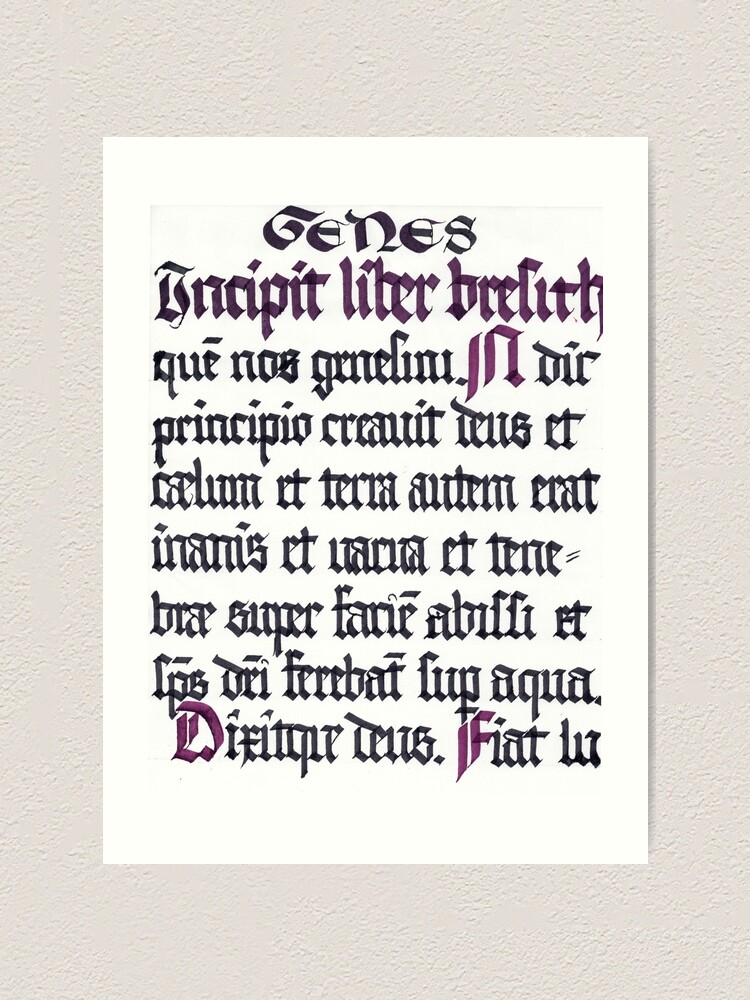 GENES
Incipit liber bresith
quē nos genesim. IN dic̄
principio creavit deus et
cælum et terra autem erat
inanis et vacua et tene=
bræ super faciē abissi et
sp̄s dei ferebat̄ sup aqua.
Dixitque deus. Fiat lu